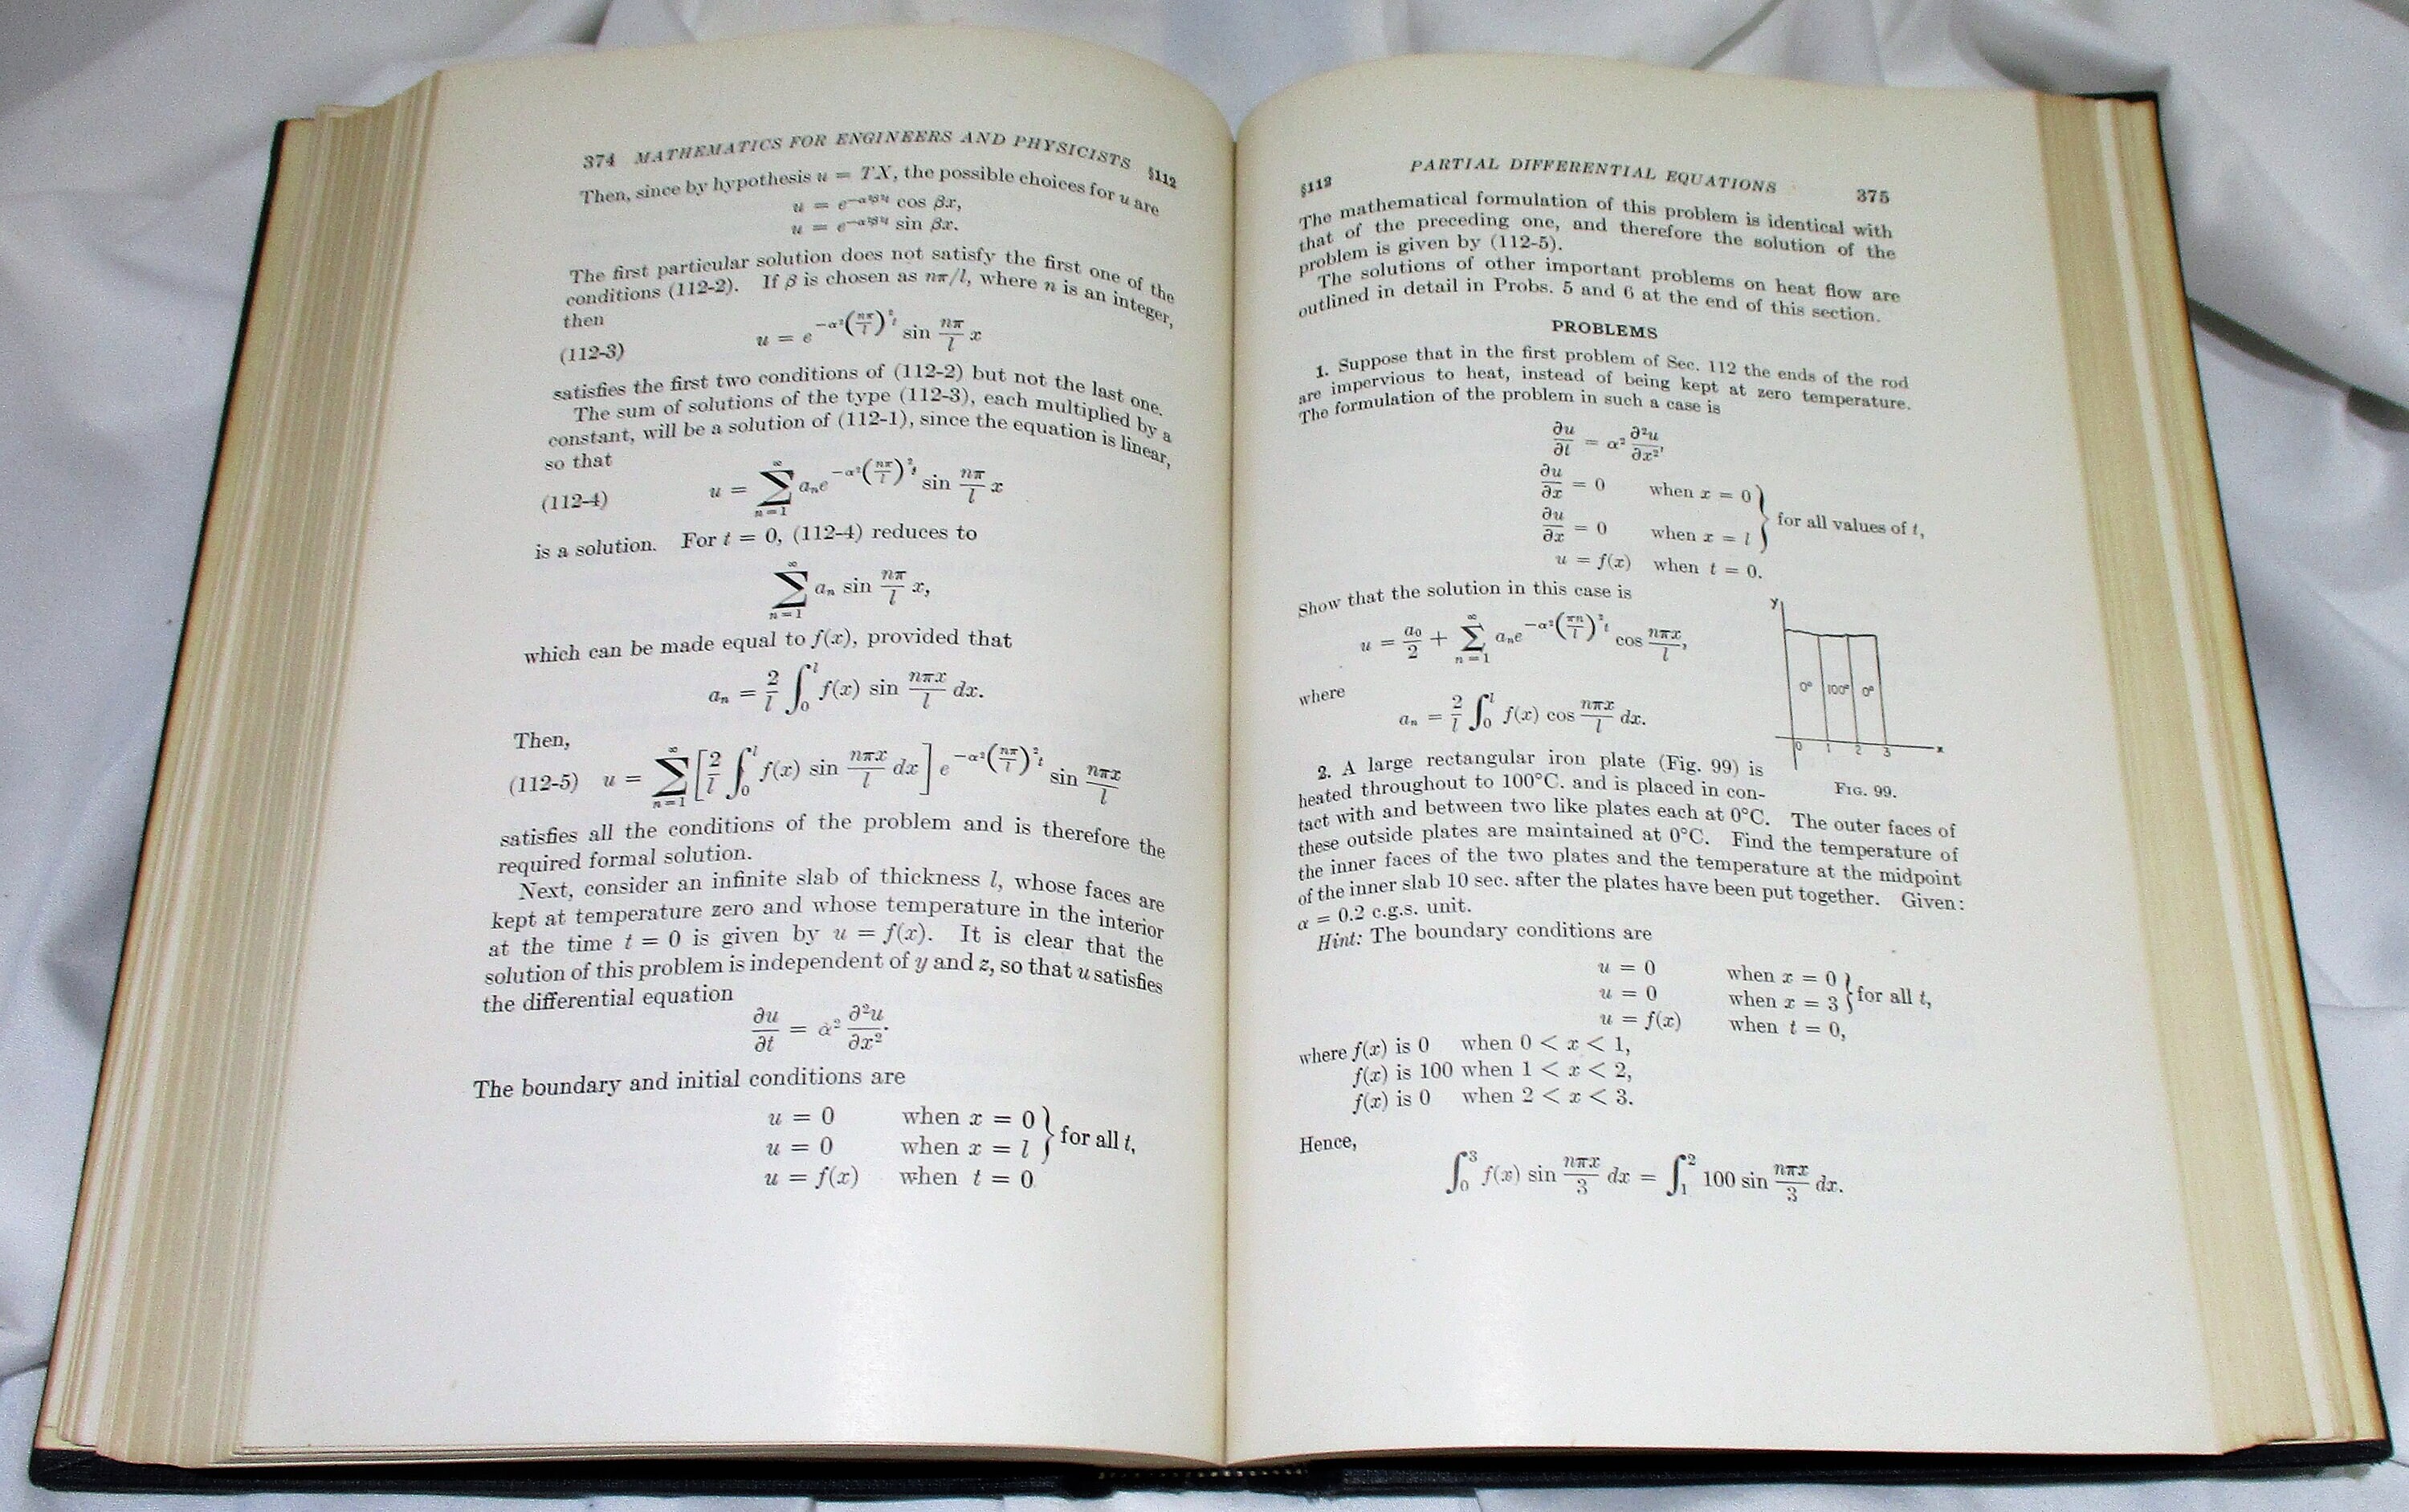 374 MATHEMATICS FOR ENGINEERS AND PHYSICISTS §112
Then, since by hypothesis u = TX, the possible choices for u are
u = e^{-α²β²t} cos βx,
u = e^{-α²β²t} sin βx.
The first particular solution does not satisfy the first one of the
conditions (112-2). If β is chosen as nπ/l, where n is an integer,
then
(112-3) u = e^{-α²(nπ/l)²t} sin nπ/l x
satisfies the first two conditions of (112-2) but not the last one.
The sum of solutions of the type (112-3), each multiplied by a
constant, will be a solution of (112-1), since the equation is linear,
so that
(112-4) u = ∑_{n=1}^{∞} aₙe^{-α²(nπ/l)²t} sin nπ/l x
is a solution. For t = 0, (112-4) reduces to
∑_{n=1}^{∞} aₙ sin nπ/l x,
which can be made equal to f(x), provided that
aₙ = 2/l ∫₀^l f(x) sin nπx/l dx.
Then,
(112-5) u = ∑_{n=1}^{∞} [2/l ∫₀^l f(x) sin nπx/l dx] e^{-α²(nπ/l)²t} sin nπx/l
satisfies all the conditions of the problem and is therefore the
required formal solution.
Next, consider an infinite slab of thickness l, whose faces are
kept at temperature zero and whose temperature in the interior
at the time t = 0 is given by u = f(x). It is clear that the
solution of this problem is independent of y and z, so that u satisfies
the differential equation
∂u/∂t = α² ∂²u/∂x².
The boundary and initial conditions are
u = 0 when x = 0 } for all t,
u = 0 when x = l
u = f(x) when t = 0
§112 PARTIAL DIFFERENTIAL EQUATIONS 375
The mathematical formulation of this problem is identical with
that of the preceding one, and therefore the solution of the
problem is given by (112-5).
The solutions of other important problems on heat flow are
outlined in detail in Probs. 5 and 6 at the end of this section.
PROBLEMS
1. Suppose that in the first problem of Sec. 112 the ends of the rod
are impervious to heat, instead of being kept at zero temperature.
The formulation of the problem in such a case is
∂u/∂t = α² ∂²u/∂x²,
∂u/∂x = 0 when x = 0 } for all values of t,
∂u/∂x = 0 when x = l
u = f(x) when t = 0.
Show that the solution in this case is
u = a₀/2 + ∑_{n=1}^{∞} aₙe^{-α²(πn/l)²t} cos nπx/l,
where
aₙ = 2/l ∫₀^l f(x) cos nπx/l dx.
y
0° 100° 0°
0 1 2 3 x
FIG. 99.
2. A large rectangular iron plate (Fig. 99) is
heated throughout to 100°C. and is placed in con-
tact with and between two like plates each at 0°C. The outer faces of
these outside plates are maintained at 0°C. Find the temperature of
the inner faces of the two plates and the temperature at the midpoint
of the inner slab 10 sec. after the plates have been put together. Given:
α = 0.2 c.g.s. unit.
Hint: The boundary conditions are
u = 0 when x = 0 } for all t,
u = 0 when x = 3
u = f(x) when t = 0,
where f(x) is 0 when 0 < x < 1,
f(x) is 100 when 1 < x < 2,
f(x) is 0 when 2 < x < 3.
Hence,
∫₀³ f(x) sin nπx/3 dx = ∫₁² 100 sin nπx/3 dx.